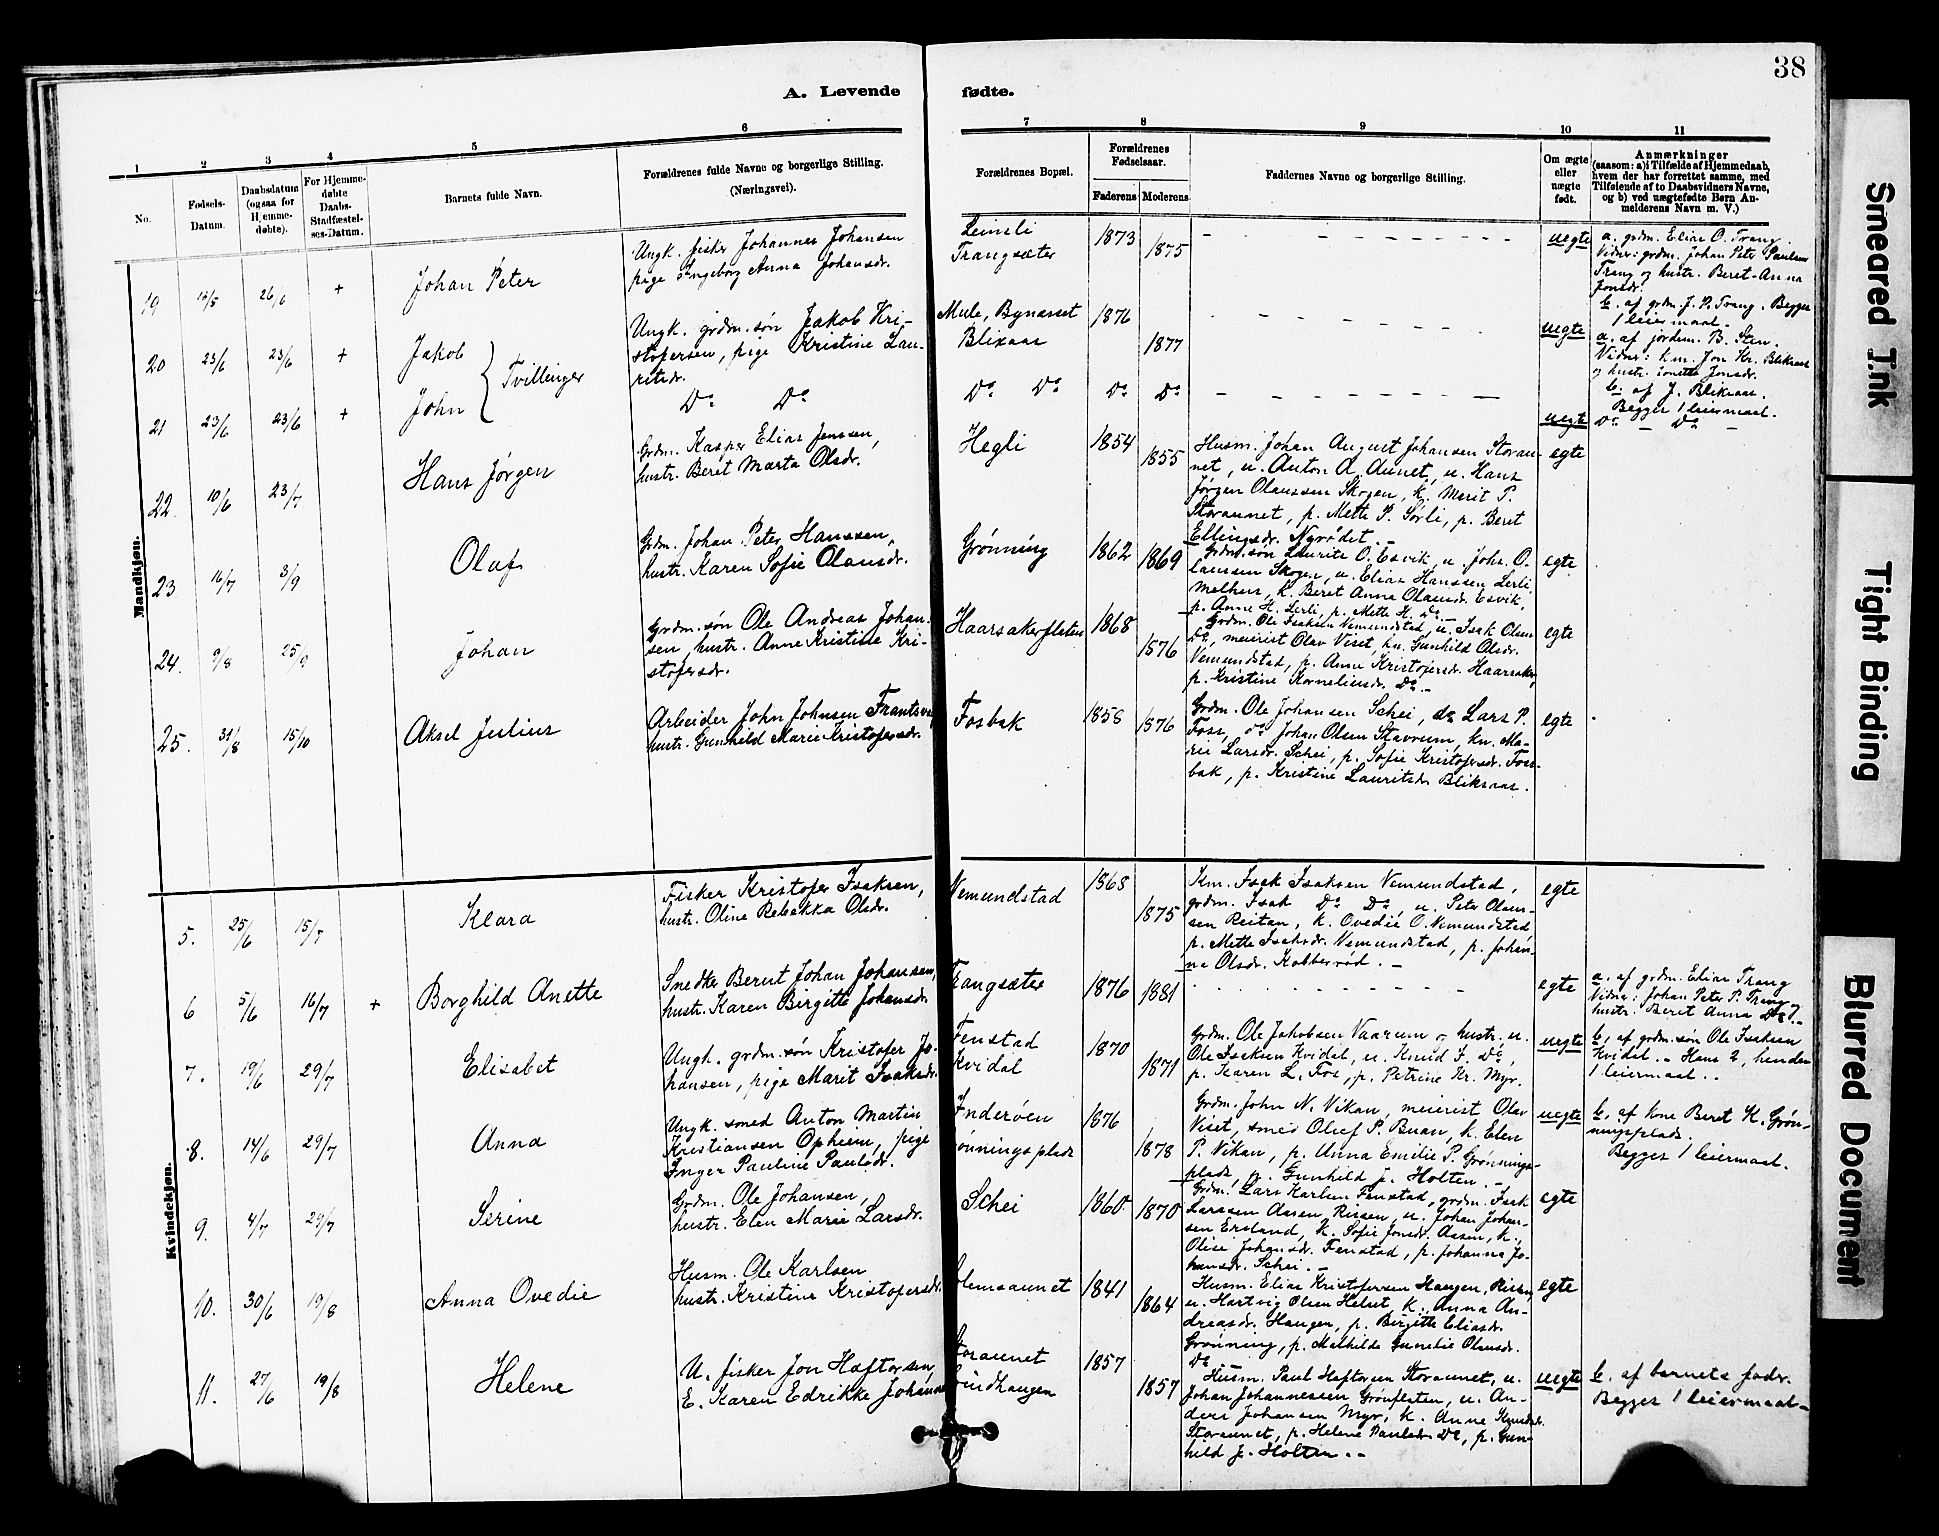 38
A. Levende fødte.
1
2
3
4
5
6
7
8
9
10
11
No.
Fødsels-
Datum.
Daabsdatum
(ogsaa for
Hjemme-
døbte).
For Hjemme-
døbte
Daabs-
Stadfæstel-
ses-Datum.
Barnets fulde Navn.
Forældrenes fulde Navne og borgerlige Stilling.
(Næringsvei).
Forældrenes Bopæl.
Forældrenes
Fødselsaar.
Faderens Moderens
Faddernes Navne og borgerlige Stilling.
Om ægte
eller
uægte
født.
Anmærkninger
(saasom: a) i Tilfælde af Hjemmedaab,
hvem der har forrettet samme, med
Tilføiende af to Daabsvidners Navne,
og b) ved uægtefødte Børn An-
melderens Navn m. V.)
Mandkjøn.
19 13/5 26/6 + Johan Peter
Ungk. fisker Johannes Johansen
pige Ingeborg Anna Johansdr.
Leinsli
Trangsæter
1873 1875
uegte
a. grdm. Elias O. Trang.
Vidner: grdm. Johan Peter Paulsen
Trang og hustr. Beret-Anna
Jonsdr.
b. af grdm. J. P. Trang. Begges
1 leiermaal.
20 23/6 23/6 + Jakob
Tvillinger
Ungk. grdm. søn Jakob Kri-
stofersen, pige Kristine Lau-
ritsdr.
Mule, Bynæsset
Blixaas
1876 1877
uegte
a. af jordm. B. Sten.
Vidner: km. Jon Kr. Bliksaas
og hustr. Jonetta Jonsdr.
b. af J. Bliksaas.
Begges 1 leiermaal.
21 23/6 23/6 + John
Do Do
Do Do
Do Do
uegte
Do - Do -
22. 10/6 23/7 Hans Jørgen
Grdm. Kasper Elias Jenssen,
hustr. Beret Marta Olsdr.
Hegli
1854 1855
Husm. Johan August Johansen Storau-
net, u. Anton A. Aunet, u. Hans
Jørgen Olaussen Skogen, k. Merit P.
Storaunet, p. Mette P. Sørli, p. Beret
Ellingsdr. Nyrødet. -
egte
23 16/7 3/9 Olaf
Grdm. Johan Peter Hanssen,
hustr. Karen Sofie Olausdr.
Grønning
1862 1869
Grdm. søn Laurits O. Esvik, u. Johs. O-
laussen Skogen, u. Elias Hanssen Lerli
Melhus, k. Beret Anna Olausdr. Esvik,
p. Anne H. Lerli, p. Mette H. Do -
egte
24. 9/8 25/9 Johan
Grdm. søn Ole Andreas Johan-
sen, hustr. Anne Kristine Kri-
stofersdr.
Haarsakerflaten
1868 1876
Grdm. Ole Isaksen Vemundstad, u. Isak Olsen
Do, meierist Olav Viset, kn. Gunhild Olsdr.
Vemundstad, p. Anne Kristofersdr. Haarsaker,
p. Kristine Korneliusdr. Do -
egte
25. 31/8 15/10 Aksel Julius
Arbeider John Johnsen
hustr. Gunhild Marie Kristofersdr.
Fosbak
1858 1876
Grdm. Ole Johansen Schei, do Lars P.
Foss, do Johan Olsen Stavrum, kn. Ma-
rie Larsdr. Schei, p. Sofie Kristofersdr. Fos-
bak, p. Kristine Lauritsdr. Bliksaas.
egte
Kvindekjøn.
5. 25/6 15/7 Klara
Fisker Kristofer Isaksen,
hustr. Oline Rebekka Olsdr.
Vemundstad
1868 1875
Km. Isak Isaksen Vemundstad,
grdm. Isak Do Do, u. Peter Olaus-
sen Reitan, k. Ovedie O. Vemundstad
p. Mette Isaksdr. Vemundstad, p. Johan-
na Olsdr. Kobberrød. -
egte
6 5/6 16/7 + Borghild Anette
Snedker Bernt Johan Johansen,
hustr. Karen Birgitte Johansdr.
Trangsæter
1876 1881
egte
a. af grdm. Elias Trang
Vidner: Johan Peter P. Trang og
hustr. Beret Anna
7. 19/6 29/7 Elisabet
Ungk. grdm. søn Kristofer Jo-
hansen, pige Marit Isaksdr.
Fenstad
Kvidal
1870 1871
Grdm. Ole Jakobsen Vaarum og hustr., u.
Ole Isaksen Kvidal, u. Knud I. Do,
p. Karen L. Fos, p. Petrine Kr. Myr.
uegte
b. af grdm. søn Ole Isaksen
Kvidal. - Hans 2, hendes
1 leiermaal.
8. 14/6 29/7 Anna
Ungk. smed Anton Martin
Kristiansen Opheim, pige
Inger Pauline Paulsdr.
Inderøen
Grønningsplads
1876 1878
Grdm. John N. Vikan, meierist Olav
Viset, smed Oluf P. Buan, k. Elen
P. Vikan, p. Anna Emilie P. Grønnings-
plads, p. Gunhild J. Holten. -
uegte
b. af kone Beret K. Grøn-
ningsplads.
Begges 1 leiermaal.
9. 4/7 29/7 Serine
Grdm. Ole Johansen,
hustr. Elen Marie Larsdr.
Schei
1860 1870
Grdm. Lars Karlsen Fenstad, grdm. Isak
Larssen Aasen, Rissen, u. Johan Johan-
sen Ersland, k. Sofie Jonsdr. Aasen, k.
Olise Johansdr. Fenstad, p. Johanna Jo-
hansdr. Schei. -
egte
10. 30/6 19/8 Anna Ovedie
Husm. Ole Karlsen
hustr. Kristine Kristofersdr.
1841 1864
Husm. Elias Kristofersen Haugen, Rissen,
u. Hartvig Olsen Helset, k. Anna An-
dreasdr. Haugen, p. Birgitte Eliasdr.
Grønning, p. Mathilde Gunelie Olausdr.
Do. -
egte
11. 27/6 19/8 Helene
U. fisker Jon Haftorsen,
E. Karen Edrikke Johansdr.
Storaunet
Lindhaugen
1857 1857
Husm. Paul Haftorsen Storaunet, u.
Johan Johannessen Grønflaten, u. An-
ders Johansen Myr, k. Anne Knudsdr.
Storaunet, p. Helene Paulsdr. Do, p. Gun-
hild J. Holten. -
uegte
b. af barnets fader.
Begges 1 leiermaal. -
Smeared Ink
Tight Binding
Blurred Document